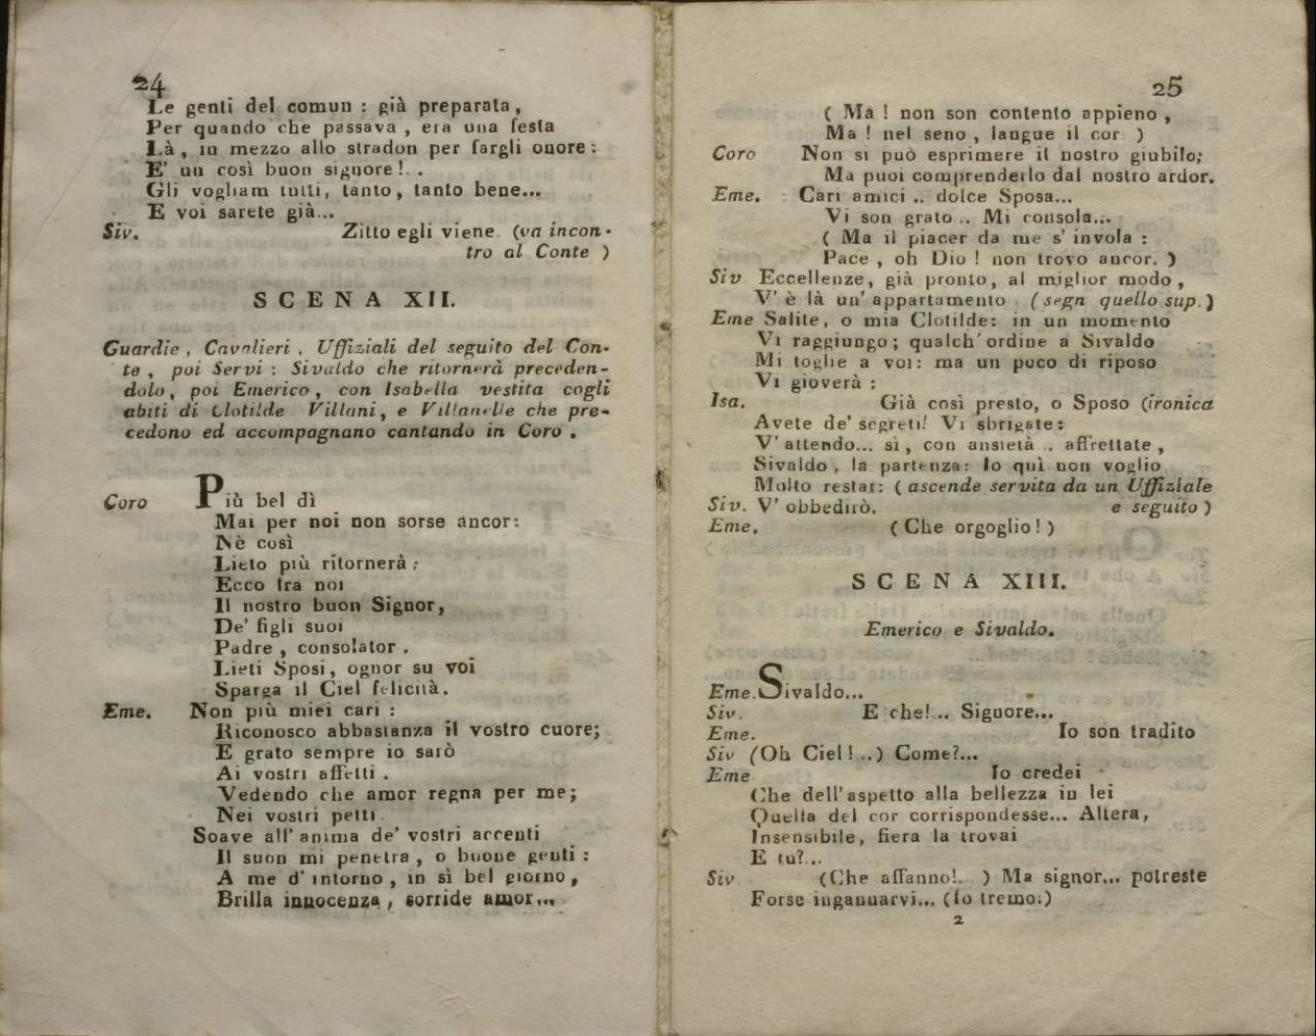 24
Le genti del comun : già preparata ,
Per quando che passava , era una festa
Là , in mezzo allo stradon per fargli onore :
E' un così buon signore ! . .
Gli vogliam tutti, tanto , tanto bene...
E voi sarete già...
Siv. Zitto egli viene (va incon-
tro al Conte )
SCENA XII.
Guardie , Cavalieri , Uffiziali del seguito del Con-
te , poi Servi : Sivaldo che ritornerà preceden-
dolo , poi Emerico , con Isabella vestita cogli
abiti di Clotilde Villani , e Villanelle che pre-
cedono ed accompagnano cantando in Coro .
Coro Più bel dì
Mai per noi non sorse ancor:
Nè così
Lieto più ritornerà ;
Ecco tra noi
Il nostro buon Signor,
De' figli suoi
Padre , consolator .
Lieti Sposi , ognor su voi
Sparga il Ciel felicità .
Eme. Non più miei cari :
Riconosco abbastanza il vostro cuore;
E grato sempre io sarò
Ai vostri affetti .
Vedendo che amor regna per me;
Nei vostri petti
Soave all' anima de' vostri accenti
Il suon mi penetra , o buone genti :
A me d' intorno , in sì bel giorno ,
Brilla innocenza , sorride amor...
25
( Ma ! non son contento appieno ,
Ma ! nel seno , langue il cor )
Coro Non si può esprimere il nostro giubilo;
Ma puoi comprenderlo dal nostro ardor.
Eme. Cari amici .. dolce Sposa...
Vi son grato .. Mi consola...
( Ma il piacer da me s' invola :
Pace , oh Dio ! non trovo ancor. )
Siv Eccellenze, già pronto, al miglior modo ,
V' è là un' appartamento . ( segn quello sup. )
Eme Salite, o mia Clotilde: in un momento
Vi raggiungo ; qualch' ordine a Sivaldo
Mi toglie a voi: ma un poco di riposo
Vi gioverà :
Isa. Già così presto, o Sposo (ironica
Avete de' segreti! Vi sbrigate:
V' attendo... sì , con ansietà .. affrettate ,
Sivaldo , la partenza: Io quì non voglio
Molto restar: ( ascende servita da un Uffiziale
Siv. V' obbedirò. e seguito )
Eme. ( Che orgoglio ! )
SCENA XIII.
Emerico e Sivaldo.
Eme. Sivaldo...
Siv. E che! .. Signore...
Eme. Io son tradito
Siv (Oh Ciel ! ..) Come?...
Eme Io credei
Che dell' aspetto alla bellezza in lei
Quella del cor corrispondesse... Altera,
Insensibile, fiera la trovai
E tu?...
Siv (Che affanno!. ) Ma signor... potreste
Forse ingannarvi... (Io tremo.)
2